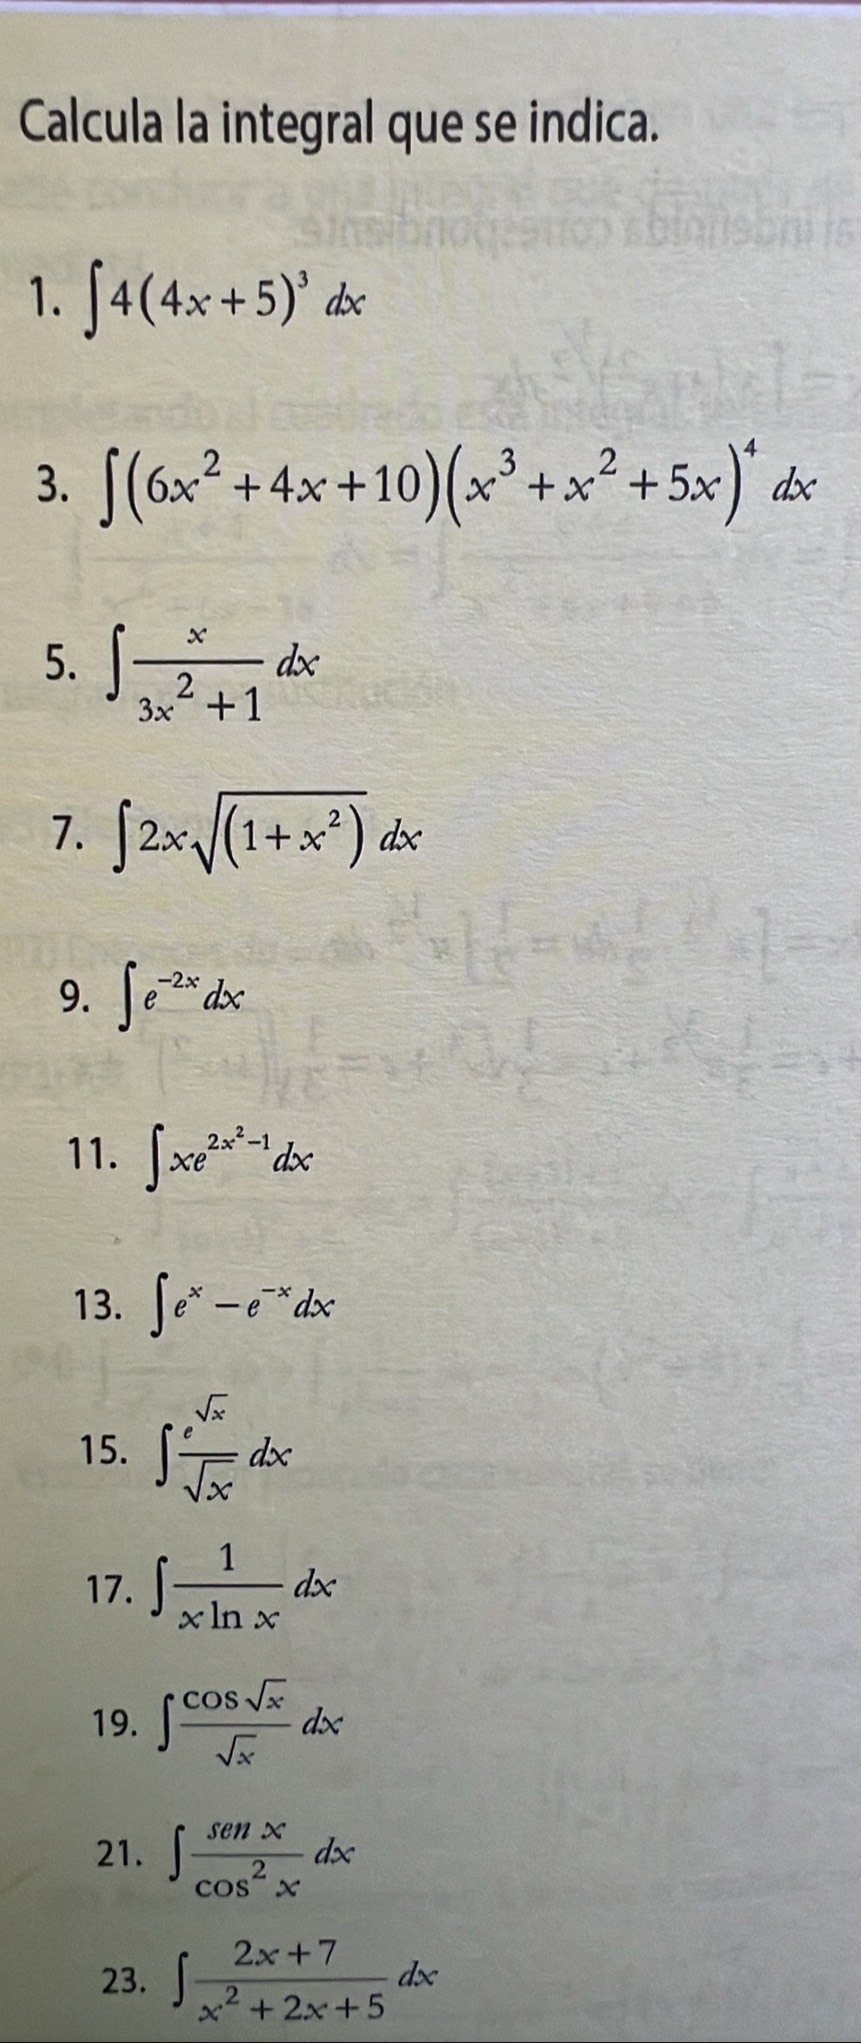 Calcula la integral que se indica.
1. ∫4(4x+5)³ dx
3. ∫(6x²+4x+10)(x³+x²+5x)⁴ dx
5. ∫ x/(3x²+1) dx
7. ∫2x√(1+x²) dx
9. ∫e^(-2x) dx
11. ∫xe^(2x²-1) dx
13. ∫e^x − e^(-x) dx
15. ∫ e^(√x)/√x dx
17. ∫ 1/(x ln x) dx
19. ∫ cos √x/√x dx
21. ∫ sen x/cos² x dx
23. ∫ (2x+7)/(x²+2x+5) dx